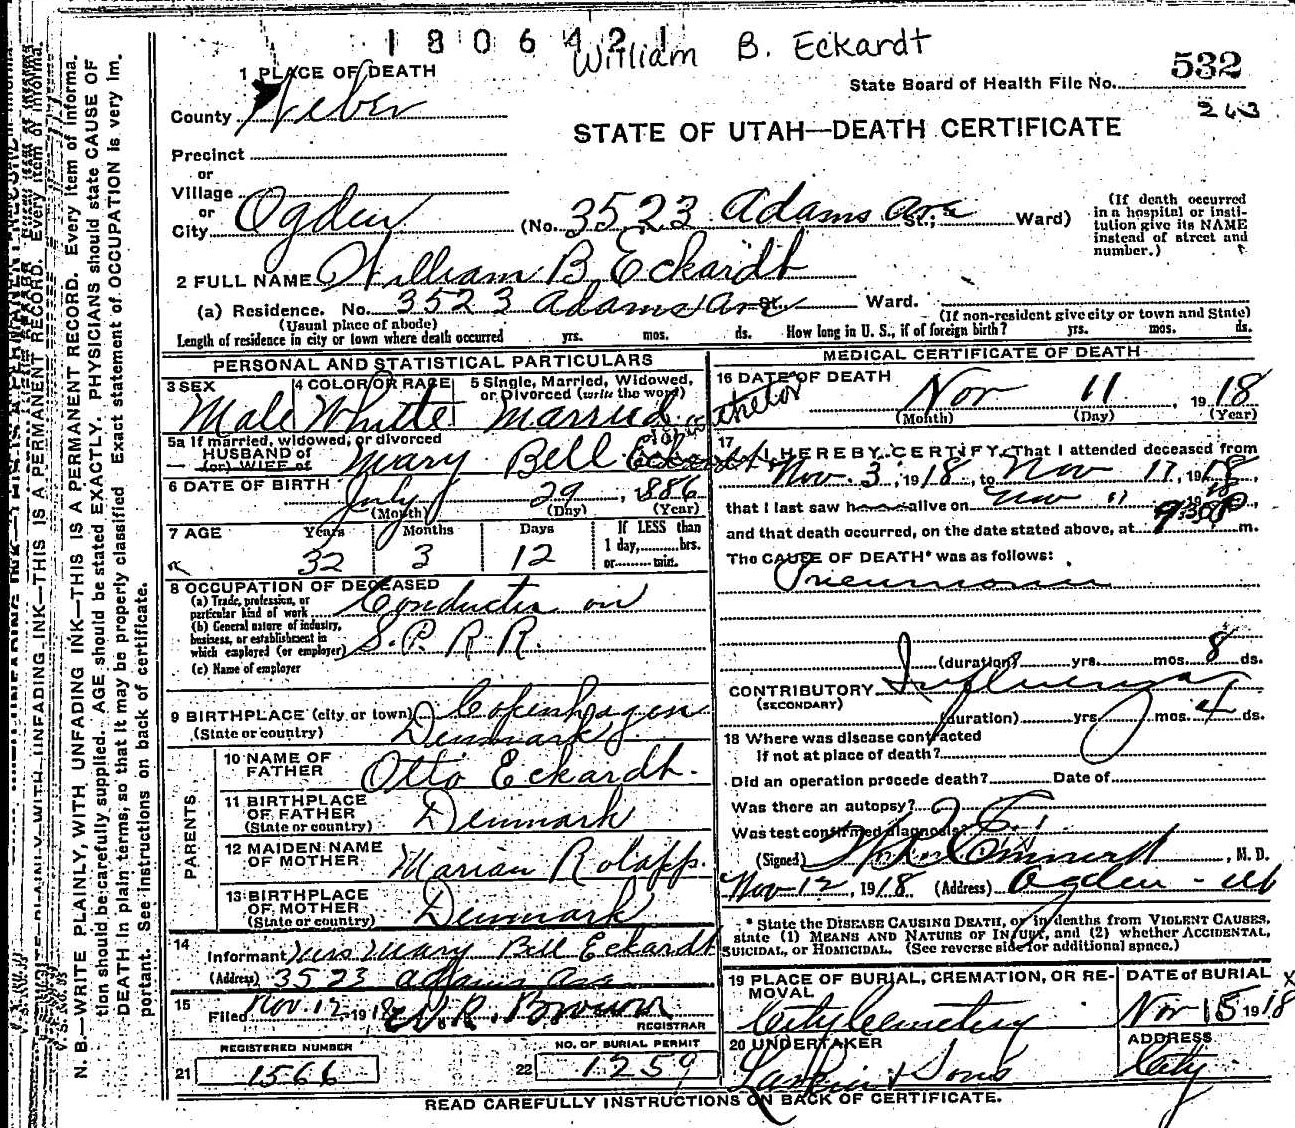 1806421
William B. Eckardt
1 PLACE OF DEATH
532
State Board of Health File No.
263
County Weber
STATE OF UTAH—DEATH CERTIFICATE
Precinct
or
Village
or
City Ogden (No. 3523 Adams Ave St.; Ward)
(If death occurred in a hospital or insti-
tution give its NAME
instead of street and
number.)
2 FULL NAME William B Eckardt
(a) Residence. No. 3523 Adams Ave St. Ward.
(Usual place of abode)
(If non-resident give city or town and State)
Length of residence in city or town where death occurred yrs. mos. ds. How long in U. S., if of foreign birth? yrs. mos. ds.
PERSONAL AND STATISTICAL PARTICULARS
3 SEX 4 COLOR OR RACE 5 Single, Married, Widowed, or Divorced (write the word)
Male White Married
5a If married, widowed, or divorced
HUSBAND of
(or) WIFE of Mary Bell Eckardt
6 DATE OF BIRTH July 29, 1886
(Month) (Day) (Year)
7 AGE Years Months Days If LESS than
1 day, hrs.
or min.
32 3 12
8 OCCUPATION OF DECEASED
(a) Trade, profession, or
particular kind of work Conductor on
(b) General nature of industry,
business, or establishment in
which employed (or employer) S. P. R. R.
(c) Name of employer
9 BIRTHPLACE (city or town) Copenhagen
(State or country) Denmark
PARENTS
10 NAME OF
FATHER Otto Eckardt.
11 BIRTHPLACE
OF FATHER Denmark
(State or country)
12 MAIDEN NAME
OF MOTHER Marian Rolapp.
13 BIRTHPLACE
OF MOTHER Denmark
(State or country)
14
Informant Mrs Mary Bell Eckardt
(Address) 3523 Adams Ave
15
Filed Nov. 12, 1918 W. R. Brown
REGISTRAR
REGISTERED NUMBER
21 1566
NO. OF BURIAL PERMIT
22 1259
MEDICAL CERTIFICATE OF DEATH
16 DATE OF DEATH
Nov 11, 1918
(Month) (Day) (Year)
17 I HEREBY CERTIFY, That I attended deceased from
Nov. 3, 1918, to Nov 11, 1918,
that I last saw h alive on Nov 11 1918
and that death occurred, on the date stated above, at 9:30 P m.
The CAUSE OF DEATH* was as follows:
Pneumonia
(duration) yrs. mos. 8 ds.
CONTRIBUTORY Influenza
(SECONDARY)
(duration) yrs. mos. 4 ds.
18 Where was disease contracted
If not at place of death?
Did an operation precede death? Date of
Was there an autopsy?
Was test confirmed diagnosis?
(Signed) , M. D.
Nov 12, 1918 (Address) Ogden - Ut
* State the DISEASE CAUSING DEATH, or in deaths from VIOLENT CAUSES,
state (1) MEANS AND NATURE OF INJURY, and (2) whether ACCIDENTAL,
SUICIDAL, or HOMICIDAL. (See reverse side for additional space.)
19 PLACE OF BURIAL, CREMATION, OR RE-
MOVAL
City Cemetery
DATE of BURIAL
Nov 15 1918
20 UNDERTAKER
Larkin & Sons
ADDRESS
City
READ CAREFULLY INSTRUCTIONS ON BACK OF CERTIFICATE.
N. B.—WRITE PLAINLY, WITH UNFADING INK—THIS IS A PERMANENT RECORD. Every item of informa-
tion should be carefully supplied. AGE should be stated EXACTLY. PHYSICIANS should state CAUSE OF
DEATH in plain terms, so that it may be properly classified Exact statement of OCCUPATION is very im-
portant. See instructions on back of certificate.